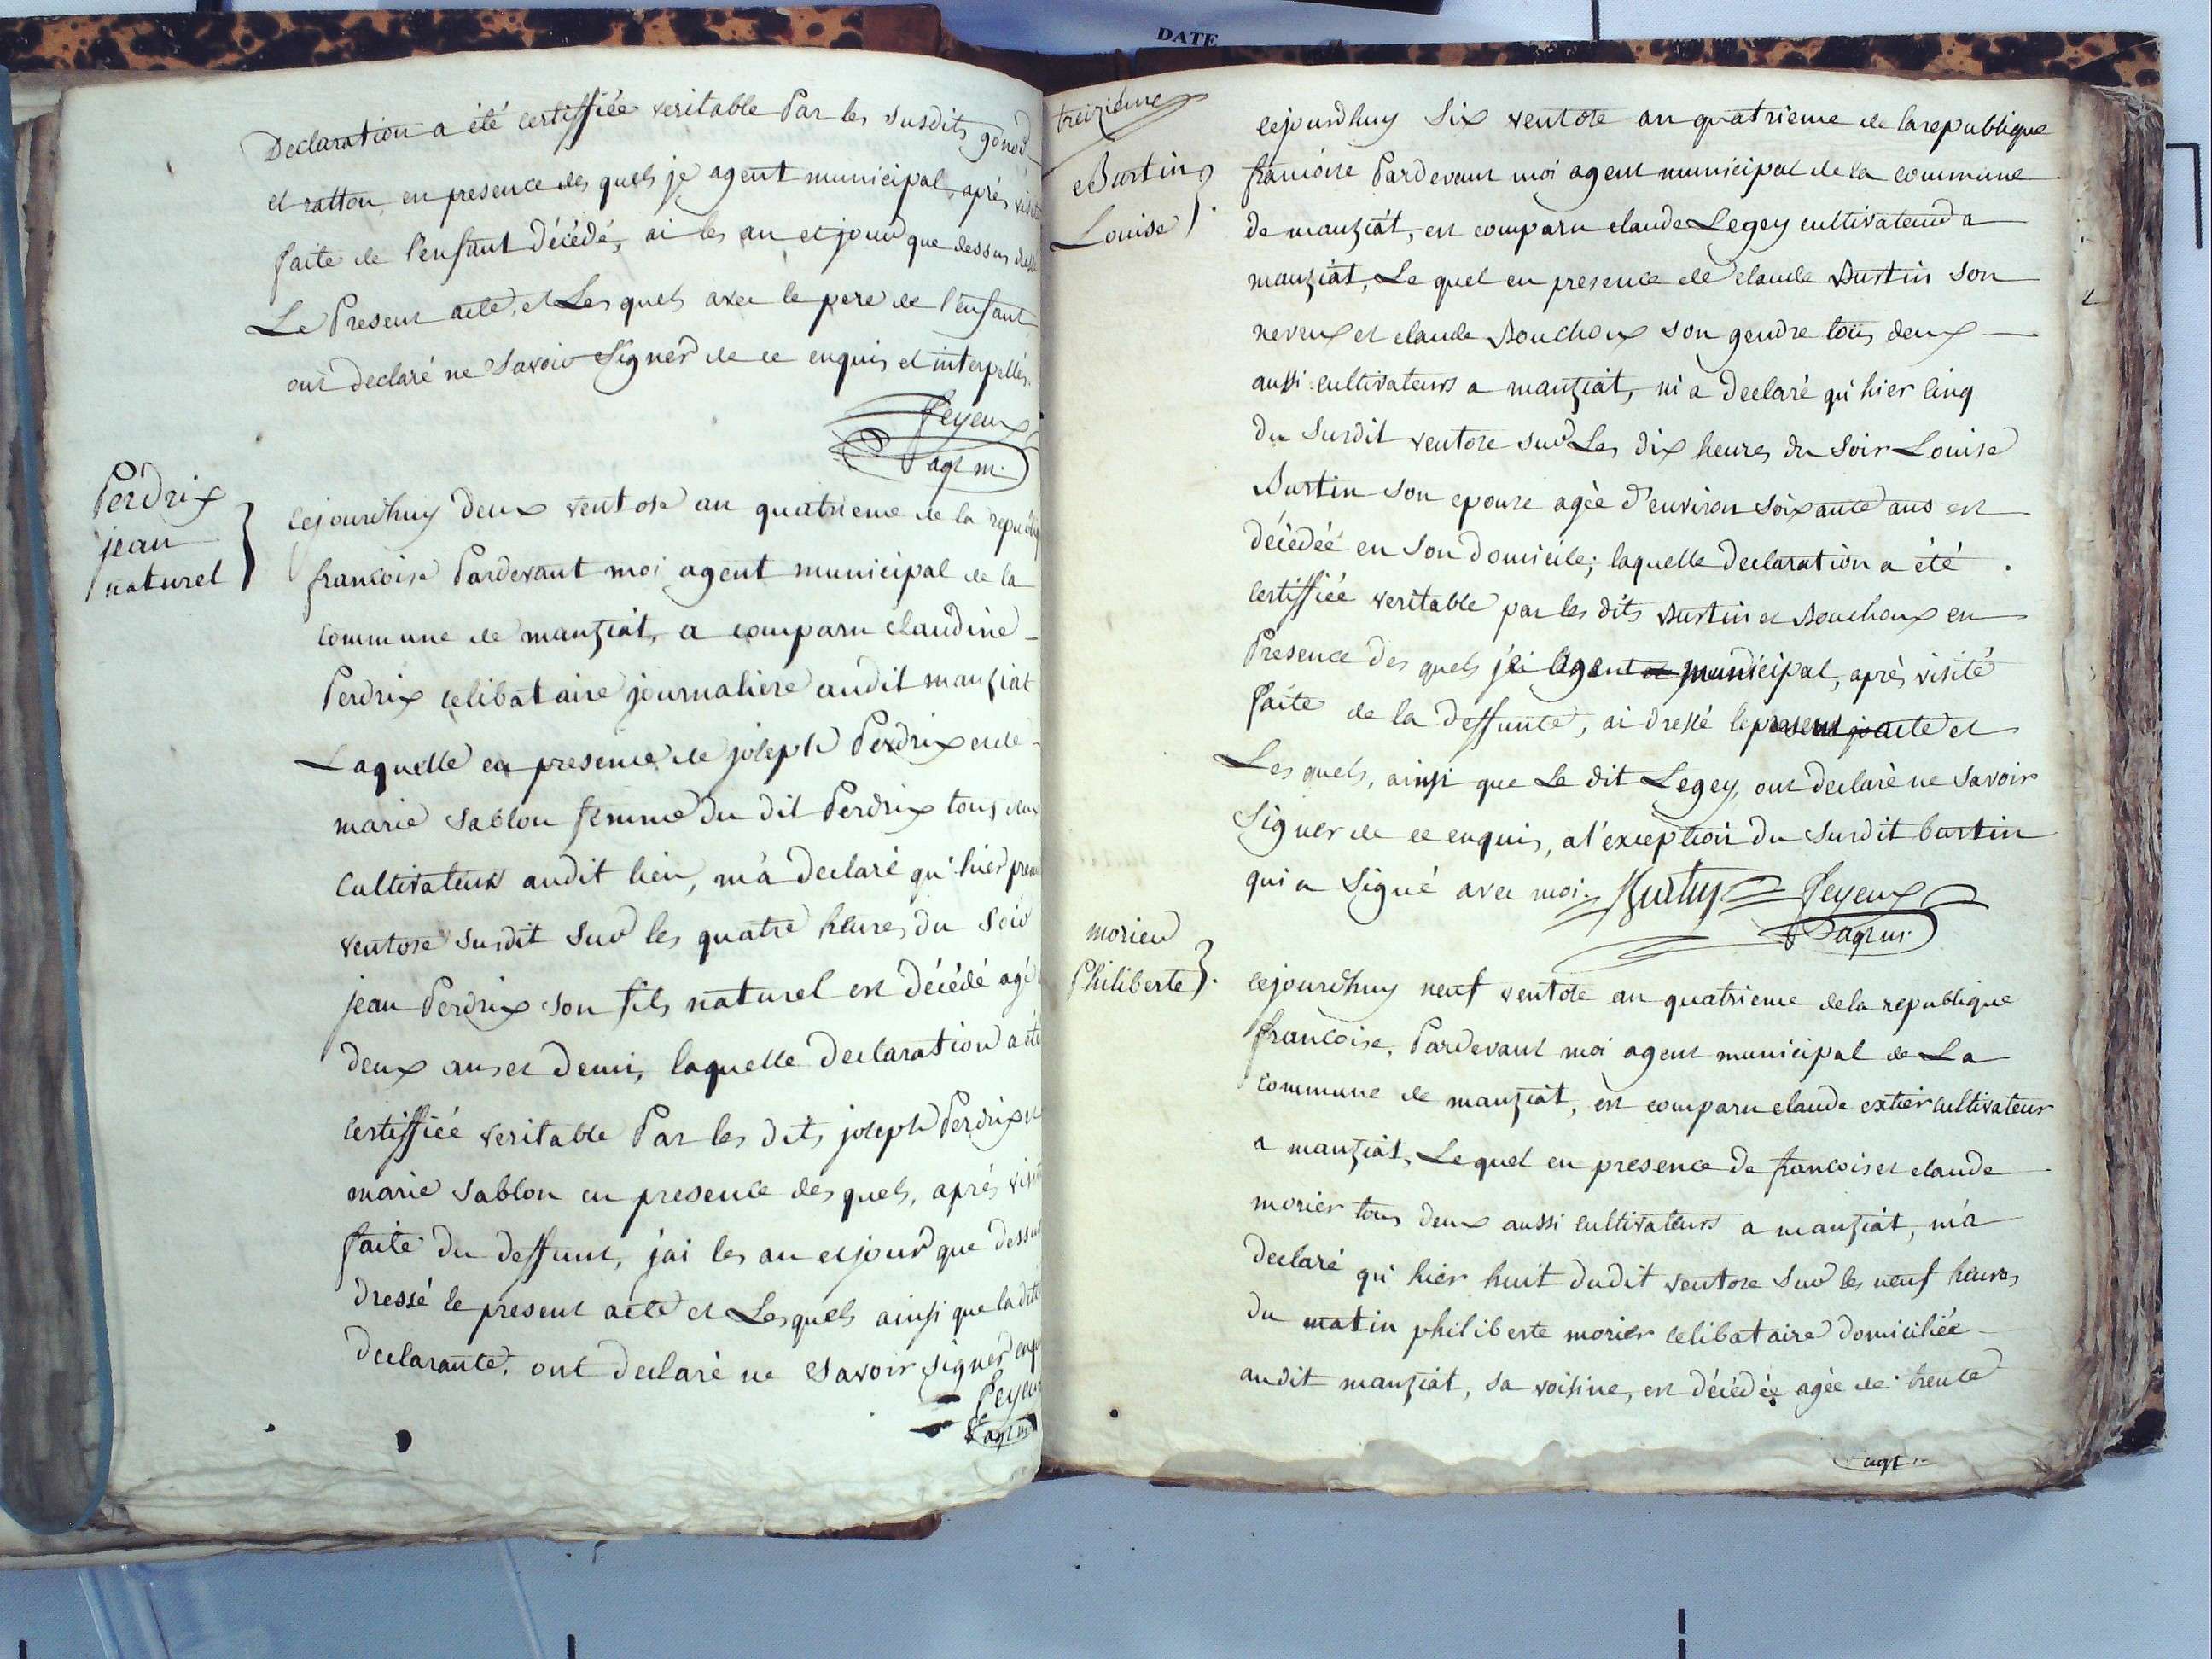 DATE
Declaration a été certiffiée veritable Par les susdits gonod
et ratton, en presence des quels je agent municipal, après visite
faite de l'enfant décédé, ai les an et jour que dessus dressé
Le Present acte, et Les quels avec le pere de l'enfant
ont declaré ne savoir signer de ce enquis et interpellés.
feyeux
agt m.
Perdrix
jean
naturel
cejourdhuy deux ventose an quatrieme de la republiq
francoise Pardevant moi agent municipal de la
commune de manziat, a comparu claudine
Perdrix celibataire journaliere audit manziat
Laquelle en presence de joseph Perdrix et de
marie sablon femme du dit Perdrix tous deux
cultivateurs audit lieu, m'a declaré qu'hier premier
ventose susdit sur les quatre heures du soir
jean Perdrix son fils naturel est décédé agé
deux ans et demi, laquelle declaration a été
certiffiée veritable Par les dits joseph Perdrix et
marie sablon en presence des quels, après visite
faite du deffunt, j'ai les an et jour que dessus
dressé le present acte et Lesquels ainsi que la ditte
declarante, ont declaré ne savoir signer enquis
feyeux
agt m
treizieme
Burtin
Louise
cejourdhuy six ventose an quatrieme de la republique
francoise Pardevant moi agent municipal de la commune
de manziat, est comparu claude Legey cultivateur a
manziat, Le quel en presence de claude Burtin son
neveux et claude Bouchoux son gendre tous deux
aussi cultivateurs a manziat, m'a declaré qu'hier cinq
du susdit ventose sur Les dix heures du soir Louise
Burtin son epouse agée d'environ soixante ans est
décédée en son domicile; laquelle declaration a été
certiffiée veritable par les dits Burtin et Bouchoux en
Presence des quels je agent municipal, après visite
faite de la deffunte, ai dressé le present acte et
Les quels, ainsi que Le dit Legey, ont declaré ne savoir
signer de ce enquis, a l'exception du susdit burtin
qui a signé avec moi. Burtin feyeux
agt m.
morier
Philiberte
cejourdhuy neuf ventose an quatrieme de la republique
francoise, Pardevant moi agent municipal de La
commune de manziat, est comparu claude extier cultivateur
a manziat, Lequel en presence de francois et claude
morier tous deux aussi cultivateurs a manziat, m'a
declaré qu'hier huit dudit ventose sur les neuf heures
du matin philiberte morier celibataire domiciliée
audit manziat, sa voisine, est décédée agée de trente
agt